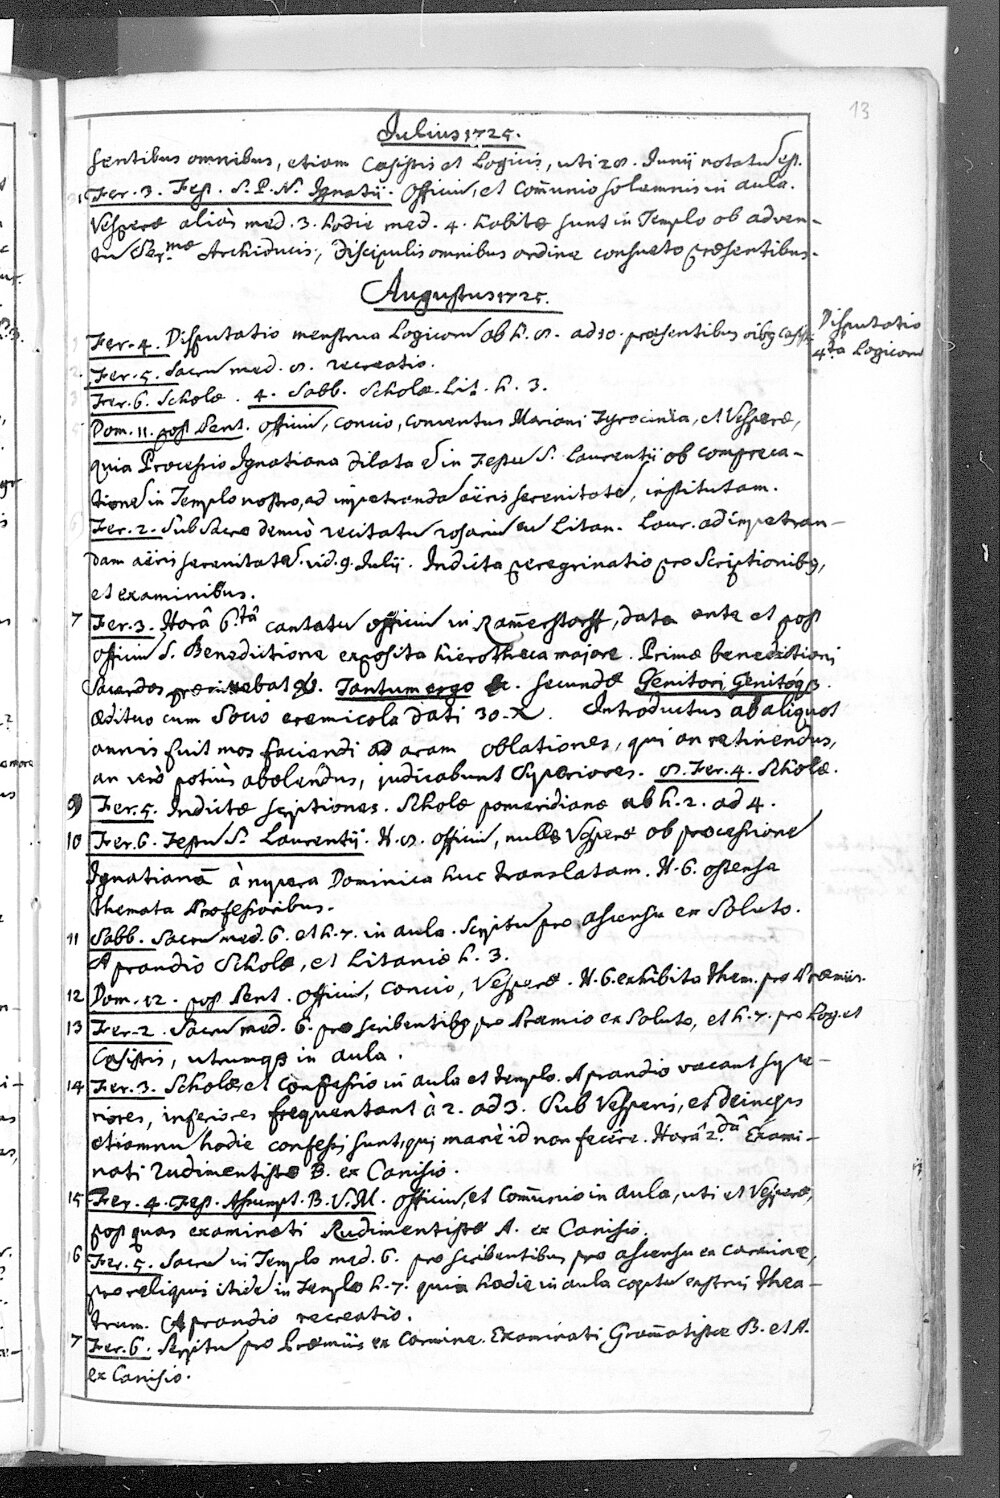 13
Julius 1725.
sentibus omnibus, etiam Casistis et Logicis, uti 28. Junij notatu est.
Fer. 3. Fest. S. P. N. Ignatij. Officiu, et Com̄unio solemnis in aula.
Vesperæ aliàs med. 3. hodie med. 4. habitæ sunt in Templo ob adven-
tu Ser.mæ Archiducis, Discipulis omnibus ordine consueto præsentibus.
Augustus 1725.
Fer. 4. Disputatio menstrua Logicoru ab h. 8. ad 10. præsentibus oibq Casist.
Disputatio
4ta Logicoru
Fer. 5. Sacru med. 8. recreatio.
Fer. 6. Scholæ. 4. Sabb. Scholæ. Lit. h. 3.
Dom. 11. post Pent. Officiu, concio, conventus Mariani Tyrocinia, et Vesperæ,
quia Processio Ignatiana dilata e in Festu S. Laurentij ob compreca-
tione in Templo nostro, ad impetranda aëris serenitate, institutam.
Fer. 2. Sub Sacro denuò recitatu rosariu cu Litan. Laur. ad impetran-
dam aëris serenitate. vid. 9. Julij. Indicta peregrinatio pro Scriptionibq,
et examinibus.
7 Fer. 3. Horâ 6.tâ cantatu officiu in Ram̄erstorff, data ante et post
Officiu S. Benedictione exposita hierotheca majore. Primæ benedictioni
Sacerdos præcinebat Tantum ergo &c. secundæ Genitori Genitoq3.
ædituo cum Socio eremicola dati 30. X. Introductus ab aliquot
annis fuit mos faciendi ad aram oblationes, qui an retinendus,
an verò potiùs abolendus, judicabunt Superiores. 8. Fer. 4. Scholæ.
9 Fer. 5. Indictæ scriptiones. Scholæ pomeridianæ ab h. 2. ad 4.
10 Fer. 6. Festu S. Laurentij. H. 8. Officiu, nullæ Vesperæ ob processione
Ignatianā à nupera Dominica huc translatam. H. 6. ostensa
themata Professoribus.
11 Sabb. Sacru med. 6. et h. 7. in aula. Scriptu pro ascensu ex Soluto.
A prandio Scholæ, et Litaniæ h. 3.
12 Dom. 12. post Pent. Officiu, Concio, Vesperæ. H. 6. exhibita them. pro Præmijs.
13 Fer. 2. Sacru med. 6. pro scribentibq pro Præmio ex Soluto, et h. 7. pro Log. et
Casistis, utrumq3 in aula.
14 Fer. 3. Scholæ et Confessio in aula et templo. A prandio vacant supe-
riores, inferiores frequentant à 2. ad 3. Sub Vesperis, et deinceps
etiamnu hodie confessi sunt, qui manè id non fecêre. Horâ 2.dâ Exami-
nati Rudimentistæ B. ex Canisio.
15 Fer. 4. Fest. Assumpt. B. V. M. Officiu, et Com̄unio in aula, uti et Vesperæ,
post quas examinati Rudimentistæ A. ex Canisio.
16 Fer. 5. Sacru in Templo med. 6. pro scribentibus pro ascensu ex carmine,
pro reliquis itide in Templo h. 7. quia hodie in aula cœptu exstrui thea-
trum. A prandio recreatio.
7 Fer. 6. Scriptu pro Præmijs ex Carmine. Examinati Gram̄atistæ B. et A.
ex Canisio.